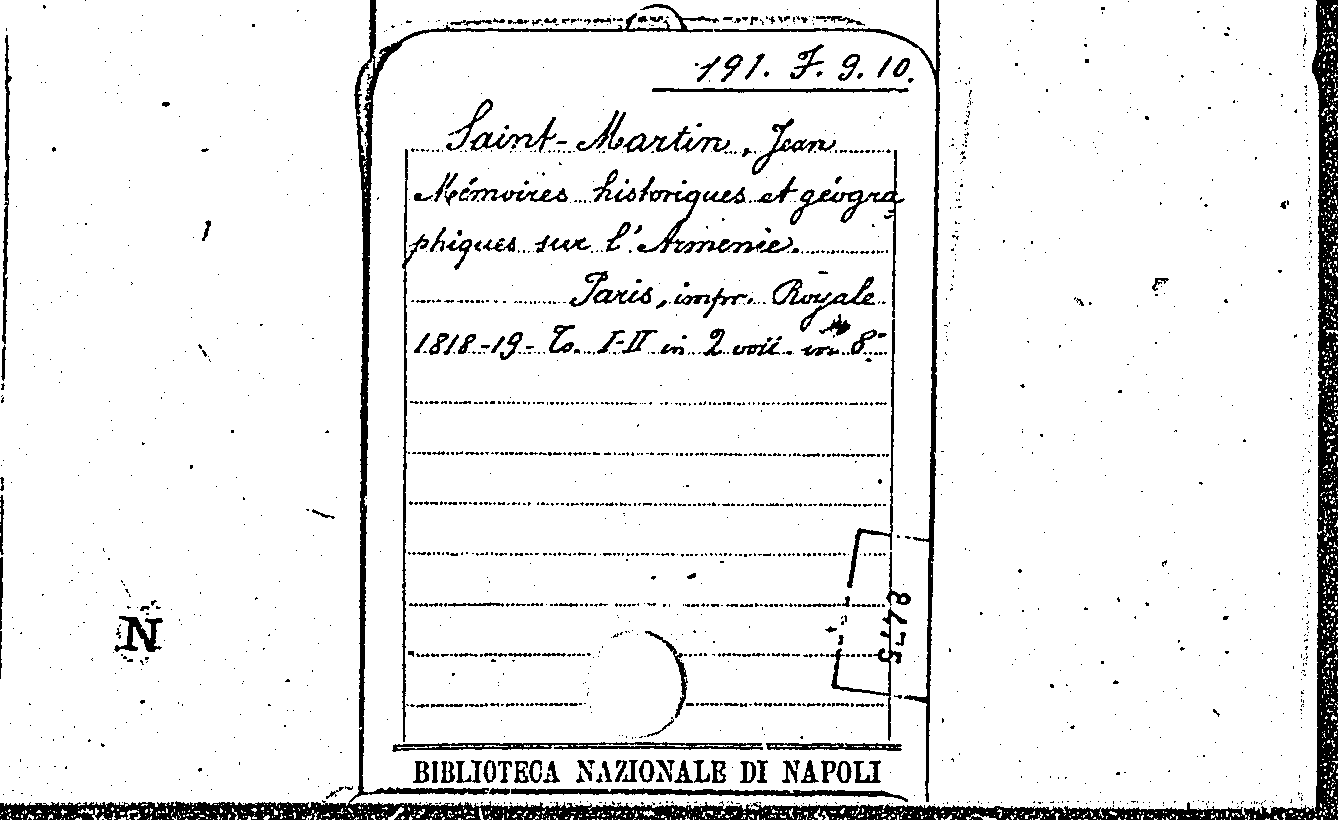 191. F. 9. 10.
Saint-Martin, Jean
Mémoires historiques et géogra
phiques sur l'Armenie.
Paris, impr. Royale
1818-19- To. I-II in 2 voll. in 8°
8475
N
BIBLIOTECA NAZIONALE DI NAPOLI